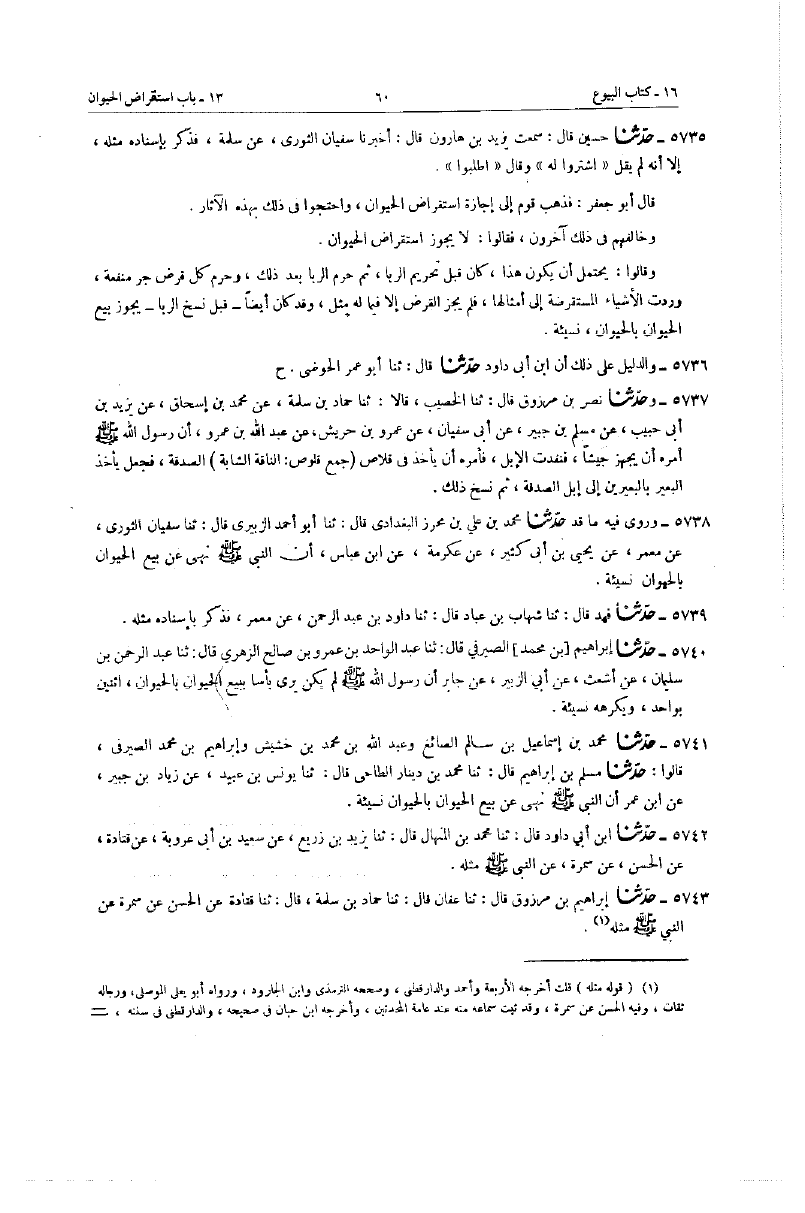 ١٦ - كتاب البيوع ٦٠ ١٣ - باب استقراض الحيوان
٥٧٣٥ - حدثنا حسين قال : سمعت يزيد بن هارون قال : أخبرنا سفيان الثورى ، عن سلمة ، فذكر بإسناده مثله ،
إلا أنه لم يقل « اشتروا له » وقال « اطلبوا » .
قال أبو جعفر : فذهب قوم إلى إجازة استقراض الحيوان ، واحتجوا فى ذلك بهذه الآثار .
وخالفهم فى ذلك آخرون ، فقالوا : لا يجوز استقراض الحيوان .
وقالوا : يحتمل أن يكون هذا ، كان قبل تحريم الربا ، ثم حرم الربا بعد ذلك ، وحرم كل قرض جر منفعة ،
وردت الأشياء المستقرضة إلى أمثالها ، فلم يجز القرض إلا فيما له مثل ، وقد كان أيضاً - قبل نسخ الربا - يجوز بيع
الحيوان بالحيوان ، نسيئة .
٥٧٣٦ - والدليل على ذلك أن ابن أبى داود حدثنا قال : ثنا أبو عمر الحوضى . ح
٥٧٣٧ - وحدثنا نصر بن مرزوق قال : ثنا الخصيب ، قالا : ثنا حماد بن سلمة ، عن محمد بن إسحاق ، عن يزيد بن
أبى حبيب ، عن مسلم بن جبير ، عن أبى سفيان ، عن عمرو بن حريش، عن عبد الله بن عمرو ، أن رسول الله ﷺ
أمره أن يجهز جيشاً ، فنفدت الإبل ، فأمره أن يأخذ فى قلاص (جمع قلوص: الناقة الشابة ) الصدقة ، فجعل يأخذ
البعير بالبعيرين إلى إبل الصدقة ، ثم نسخ ذلك .
٥٧٣٨ - وروى فيه ما قد حدثنا محمد بن علي بن محرز البغدادى قال : ثنا أبو أحمد الزبيرى قال : ثنا سفيان الثورى ،
عن معمر ، عن يحيى بن أبى كثير ، عن عكرمة ، عن ابن عباس ، أن النبي ﷺ نهى عن بيع الحيوان
بالحيوان نسيئة .
٥٧٣٩ - حدثنا فهد قال : ثنا شهاب بن عباد قال : ثنا داود بن عبد الرحمن ، عن معمر ، فذكر بإسناده مثله .
٥٧٤٠ - حدثنا إبراهيم [بن محمد] الصيرفي قال: ثنا عبد الواحد بن عمرو بن صالح الزهري قال: ثنا عبد الرحمن بن
سليمان ، عن أشعث ، عن أبي الزبير ، عن جابر أن رسول الله ﷺ لم يكن يرى بأسا ببيع الحيوان بالحيوان ، اثنين
بواحد ، ويكرهه نسيئة .
٥٧٤١ - حدثنا محمد بن إسماعيل بن سالم الصائغ وعبد الله بن محمد بن خشيش وإبراهيم بن محمد الصيرفى ،
قالوا : حدثنا مسلم بن إبراهيم قال : ثنا محمد بن دينار الطاحى قال : ثنا يونس بن عبيد ، عن زياد بن جبير ،
عن ابن عمر أن النبي ﷺ نهى عن بيع الحيوان بالحيوان نسيئة .
٥٧٤٢ - حدثنا ابن أبي داود قال : ثنا محمد بن المنهال قال : ثنا يزيد بن زريع ، عن سعيد بن أبى عروبة ، عن قتادة ،
عن الحسن ، عن سمرة ، عن النبي ﷺ مثله .
٥٧٤٣ - حدثنا إبراهيم بن مرزوق قال : ثنا عفان قال : ثنا حماد بن سلمة ، قال : ثنا قتادة عن الحسن عن سمرة عن
النبي ﷺ مثله(١) .
(١) ( قوله مثله ) قلت أخرجه الأربعة وأحمد والدارقطنى ، وصححه الترمذى وابن الجارود ، ورواه أبو يعلى الموصلى، ورجاله
ثقات ، وفيه الحسن عن سمرة ، وقد ثبت سماعه منه عند عامة المحدثين ، وأخرجه ابن حبان فى صحيحه ، والدارقطنى فى سننه ، =